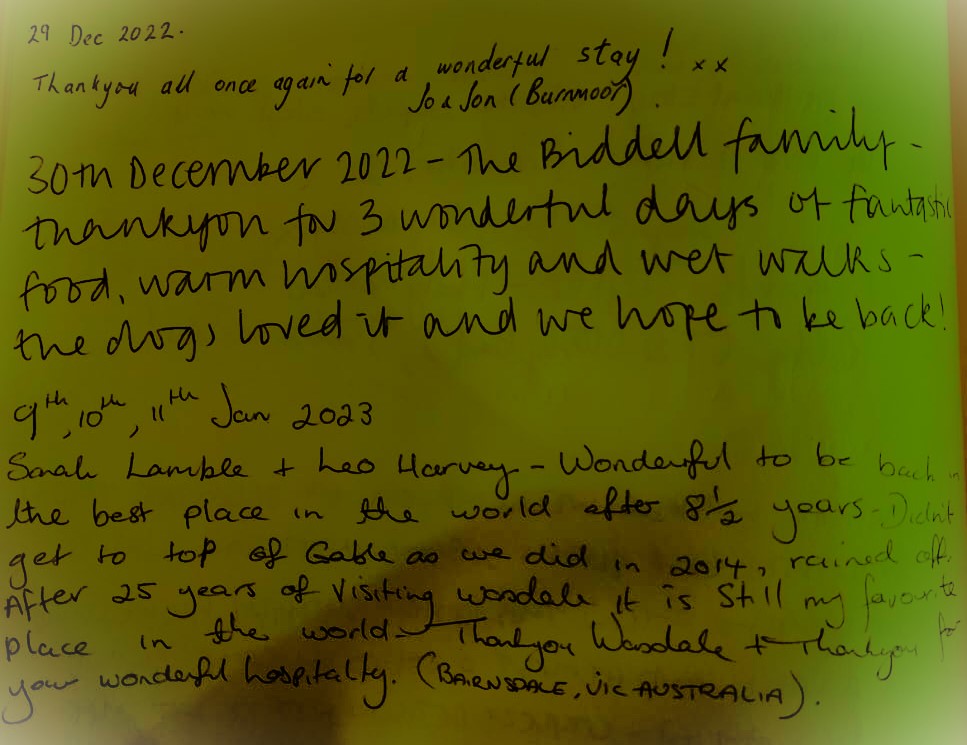 29 Dec 2022.
Thankyou all once again for a wonderful stay! xx
Jo & Jon (Burnmoor).
30th December 2022 - The Biddell family -
thankyou for 3 wonderful days of fantastic
food, warm hospitality and wet walks -
the dogs loved it and we hope to be back!
9th, 10th, 11th Jan 2023
Sarah Lamble + Leo Harvey - Wonderful to be back in
the best place in the world after 8½ years - Didn't
get to top of Gable as we did in 2014, rained off.
After 25 years of Visiting Wasdale it is Still my favourite
place in the world - Thankyou Wasdale + Thankyou for
your wonderful hospitalty. (BAIRNSDALE, VIC AUSTRALIA).